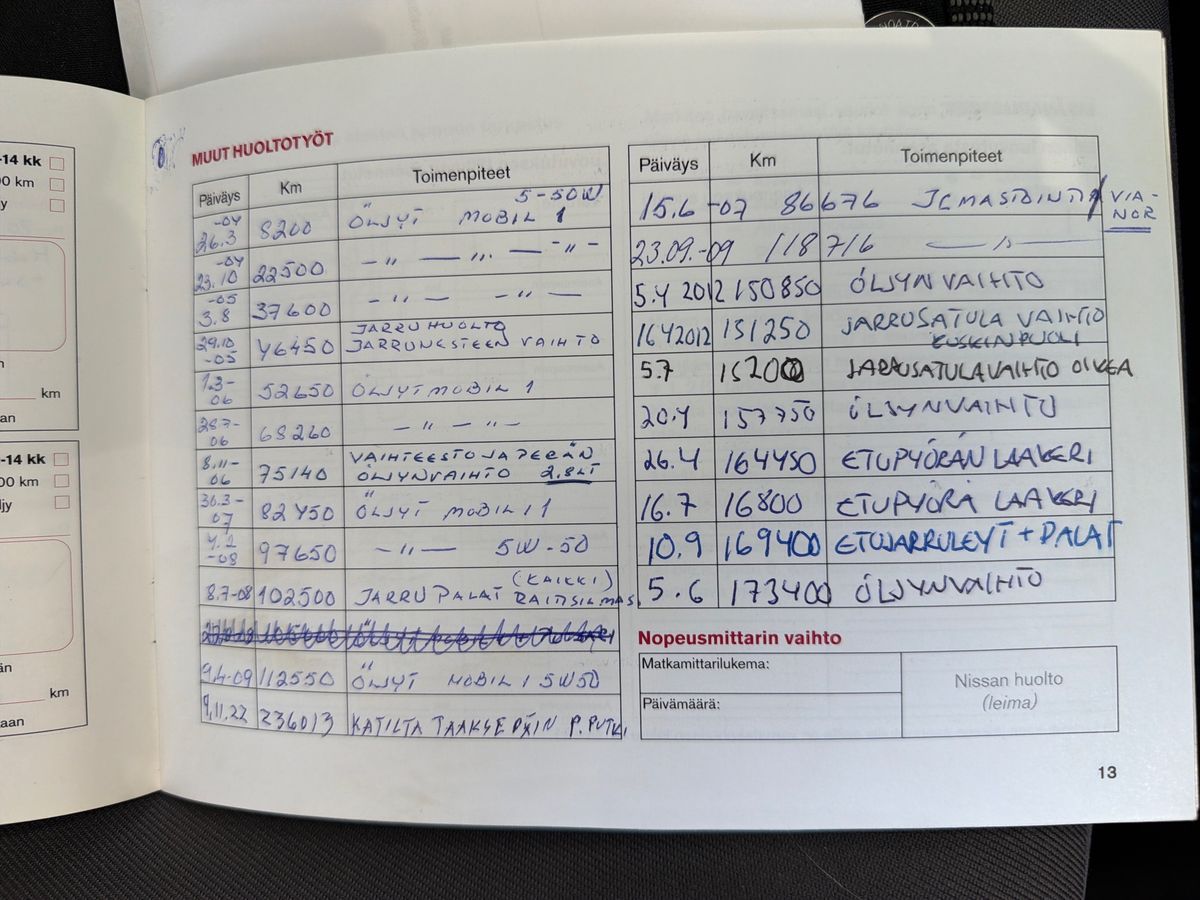 -14 kk
00 km
ljy
km
an
-14 kk
00 km
ljy
än
km
aan
MUUT HUOLTOTYÖT
Päiväys Km Toimenpiteet
5-50W
26.3 -04 8200 ÖLJYT MOBIL 1
23.10 -04 22500 -"- -"- -"-
3.8 -05 37600 -"- -"-
29.10 -05 46450 JARRUHUOLTO
JARRUNESTEEN VAIHTO
1.3- 06 52650 ÖLJYT MOBIL 1
28.7- 06 68260 -"- -"-
8.11- 06 75140 VAIHTEESTO JA PERÄN
ÖLJYNVAIHTO 2,8LT
30.3- 07 82450 ÖLJYT MOBIL 1
-08 97650 -"- 5W-50
8.7-08 102500 JARRU PALAT (KAIKKI)
9.4-09 112550 ÖLJYT MOBIL 1 5W50
9.11.22 236013 KATILTA TAAKSEPÄIN P.PUTKI
Päiväys Km Toimenpiteet
15.6 -07 86676 ILMASTOINTI / VIA-
NOR
23.09.-09 118716 -"-
5.4 2012 150850 ÖLJYNVAIHTO
16 4 2012 151250 JARRUSATULA VAIHTO
KUSKINPUOLI
5.7 15200 JARRUSATULAVAIHTO OIKEA
20.4 157750 ÖLJYNVAIHTO
26.4 164450 ETUPYÖRÄN LAAKERI
16.7 16800 ETUPYÖRÄ LAAKERI
10.9 169400 ETUJARRULEVYT + PALAT
5.6 173400 ÖLJYNVAIHTO
Nopeusmittarin vaihto
Matkamittarilukema:
Päivämäärä:
Nissan huolto
(leima)
13